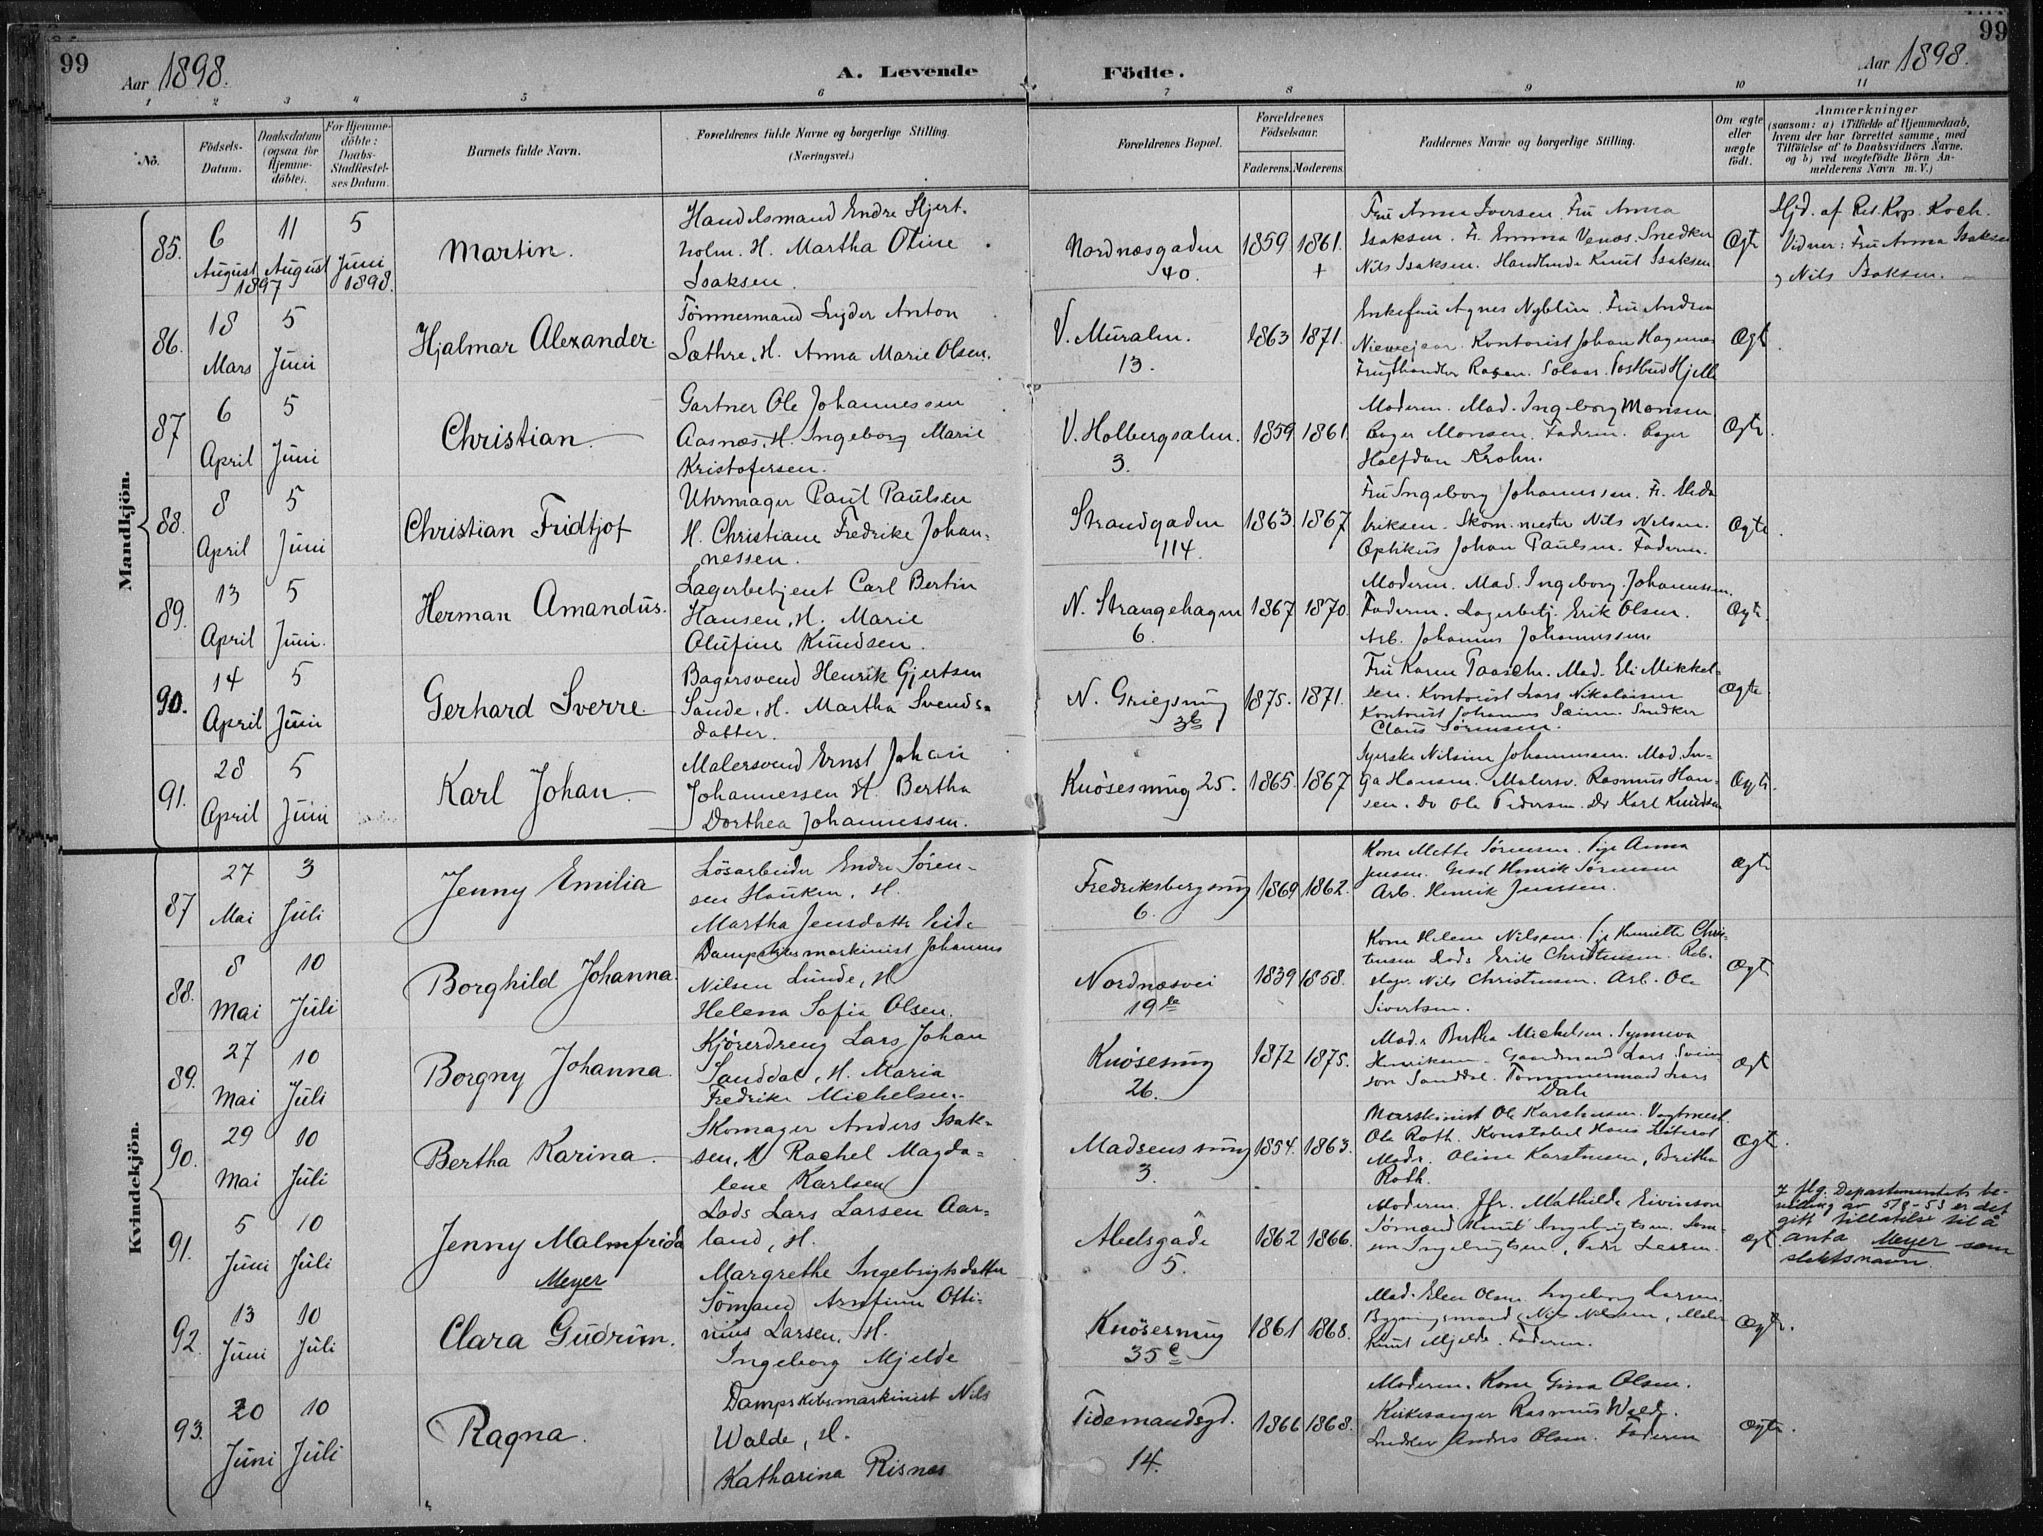 99
Aar 1898.
A. Levende
Födte.
Aar 1898.
99
1 2 3 4 5 6 7 8 9 10 11
No.
Födsels-
Datum.
Daabsdatum
(ogsaa for
Hjemme-
döbte).
For Hjemme-
döbte:
Daabs-
Stadfæstel-
ses Datum.
Barnets fulde Navn.
Forældrenes fulde Navne og borgerlige Stilling.
(Næringsvei.)
Forældrenes Bopæl.
Forældrenes
Födselsaar.
Faderens. Moderens.
Faddernes Navne og borgerlige Stilling.
Om ægte
eller
uægte
födt.
Anmærkninger
(saasom: a) i Tilfælde af Hjemmedaab,
hvem der har forrettet samme, med
Tilföielse af to Daabsvidners Navne,
og b) ved uægtefödte Börn An-
melderens Navn m. V.)
Mandkjön.
85.
6 August 1897
11 August
5 Juni 1898.
Martin.
Handelsmand Endre Hjert-
holm. H. Martha Oline
Isaksen.
Nordnæsgaden
40.
1859 1861.
+
Fru Anna Iversen. Fru Anna
Isaksen. Fr. Emma Venæs. Snedker
Nils Isaksen. Handlende Knut Isaksen
Ægte
Hjd. af Res. Kap. Koch.
Vidner: Fru Anna Isaksen
, Nils Isaksen.
86.
18 Mars
5 Juni
Hjalmar Alexander.
Tömmermand Lyder Anton
Sæthre, H. Anna Marie Olsen.
V. Muralm.
13.
1863 1871.
Enkefru Agnes Nyblin. Fru Andrea
Kontorist Johan Hagenæs
Frugthandler
Postbud Hjelle
Ægt
87
6 April
5 Juni
Christian.
Gartner Ole Johannessen
Aasnæs. H. Ingeborg Marie
Kristofersen.
V. Holbergsalm.
3.
1859. 1861.
Moderen. Mad. Ingeborg Monsen
Bager Monsen. Faderen. Bager
Halfdan Krohn.
Ægte
88.
8 April
5 Juni
Christian Fridtjof
Uhrmager Paul Paulsen
H. Christiane Fredrike Johan-
nessen.
Strandgaden
114.
1863. 1867
Fru Ingeborg Johannessen. Fr.
Skom.mester Nils Nilsen.
Optikus Johan Paulsen. Faderen.
Ægte
89.
13 April
5 Juni.
Herman Amandus.
Lagerbetjent Carl Bertin
Hansen, H. Marie
Olufine Knudsen.
N. Strangehagen
6.
1867 1870.
Moderen. Mad. Ingeborg Johannessen.
Faderen. Lagerbetj. Erik Olsen.
Arb. Johannes Johannessen
Ægte
90.
14 April
5 Juni
Gerhard Sverre
Bagersvend Henrik Gjertsen
Sande, H. Martha Svends-
datter.
N. Griegsmug
3b
1875. 1871.
Fru Karen Paasche. Mad. Eli Mikkel-
sen. Kontorist Lars Nikolaisen
Kontorist Johannes Sæim. Snedker
Claus Sörensen.
Ægte
91.
28 April
5 Juni
Karl Johan
Malersvend Ernst Johan
Johannessen H. Bertha
Dorthea Johannessen.
Knösesmug 25.
1865. 1867
Syerske Nilsine Johannessen. Mad. In-
ga Hansen. Malersv. Rasmus Han-
sen. Do Ole Pedersen. Do Karl Knudsen
Ægte.
Kvindekjön.
87
27 Mai
3 Juli
Jenny Emilia
Lösarbeider Endre Sören-
sen Hauken, H.
Martha Jensdatter Eide
Fredriksbergsmug
6.
1869 1862.
Kone Mette Sörensen. Pige Anna
Jensen. Gaard Henrik Sörensen
Arb. Henrik Jenssen.
Ægte
88.
8 Mai
10 Juli
Borghild Johanna.
Dampskibsmaskinist Johannes
Nilsen Lunde, H
Helena Sofia Olsen.
Nordnæsvei
19
1839 1858.
Kone Helene Nilsen. Pige Henriette Chris-
tensen Lods Erik Christensen. Reb-
slager Nils Christensen. Arb. Ole
Sivertsen.
Ægt
89.
27 Mai
10 Juli
Borgny Johanna
Kjörerdreng Lars Johan
Sanddal, H. Maria
Fredrike Michelsen.
Knösesmug
26.
1872 1875.
Mad. Bertha Michelsen. Synneva
Henriksen. Gaardmand Lars Svein-
son Sanddal. Tömmermand Lars
Dale
Ægt
90.
29 Mai
10 Juli
Bertha Karina
Skomager Anders Isak-
sen, H Rachel Magda-
lene Karlsen
Madsens smug
3.
1854. 1863.
Maskinist Ole Karstensen. Vagtmest.
Ole Roth. Konstabel Hans
Madr. Oline Karstensen, Britha
Roth.
Ægt.
91.
5 Juni
10 Juli
Jenny Malmfrida
Meyer
Lods Lars Larsen Aar-
land, H.
Margrethe Ingebrigtsdatter
Abelsgade
5.
1862 1866.
Moderen. Jfr. Mathilde Eivinson
Sömand Knut Ingebrigtsen. Sem-
sen Ingebrigtsen, Peder Larsen.
Ægt
I flg. Departementets be-
villing av 5/8-53 er det
gitt tillatelse til å
anta Meyer som
slektsnavn.
92.
13 Juni
10 Juli
Clara Gudrun.
Sömand Arnfinn Otti-
nius Larsen, H.
Ingeborg Mjelde
Knösesmug
35c
1861 1868.
Mad. Elen Olsen Ingeborg Larsen.
Bygningsmand Nils Nilsen, Maler
Knut Mjelde. Faderen.
Ægte.
93.
20 Juni
10 Juli
Ragna.
Dampskibsmaskinist Nils
Walde, H.
Katharina Risnæs
Tidemandsgd.
14.
1866 1868.
Moderen. Kone Gina Olsen.
Kirkesanger Rasmus Walde.
Snedker Anders Olsen. Faderen
Ægte.